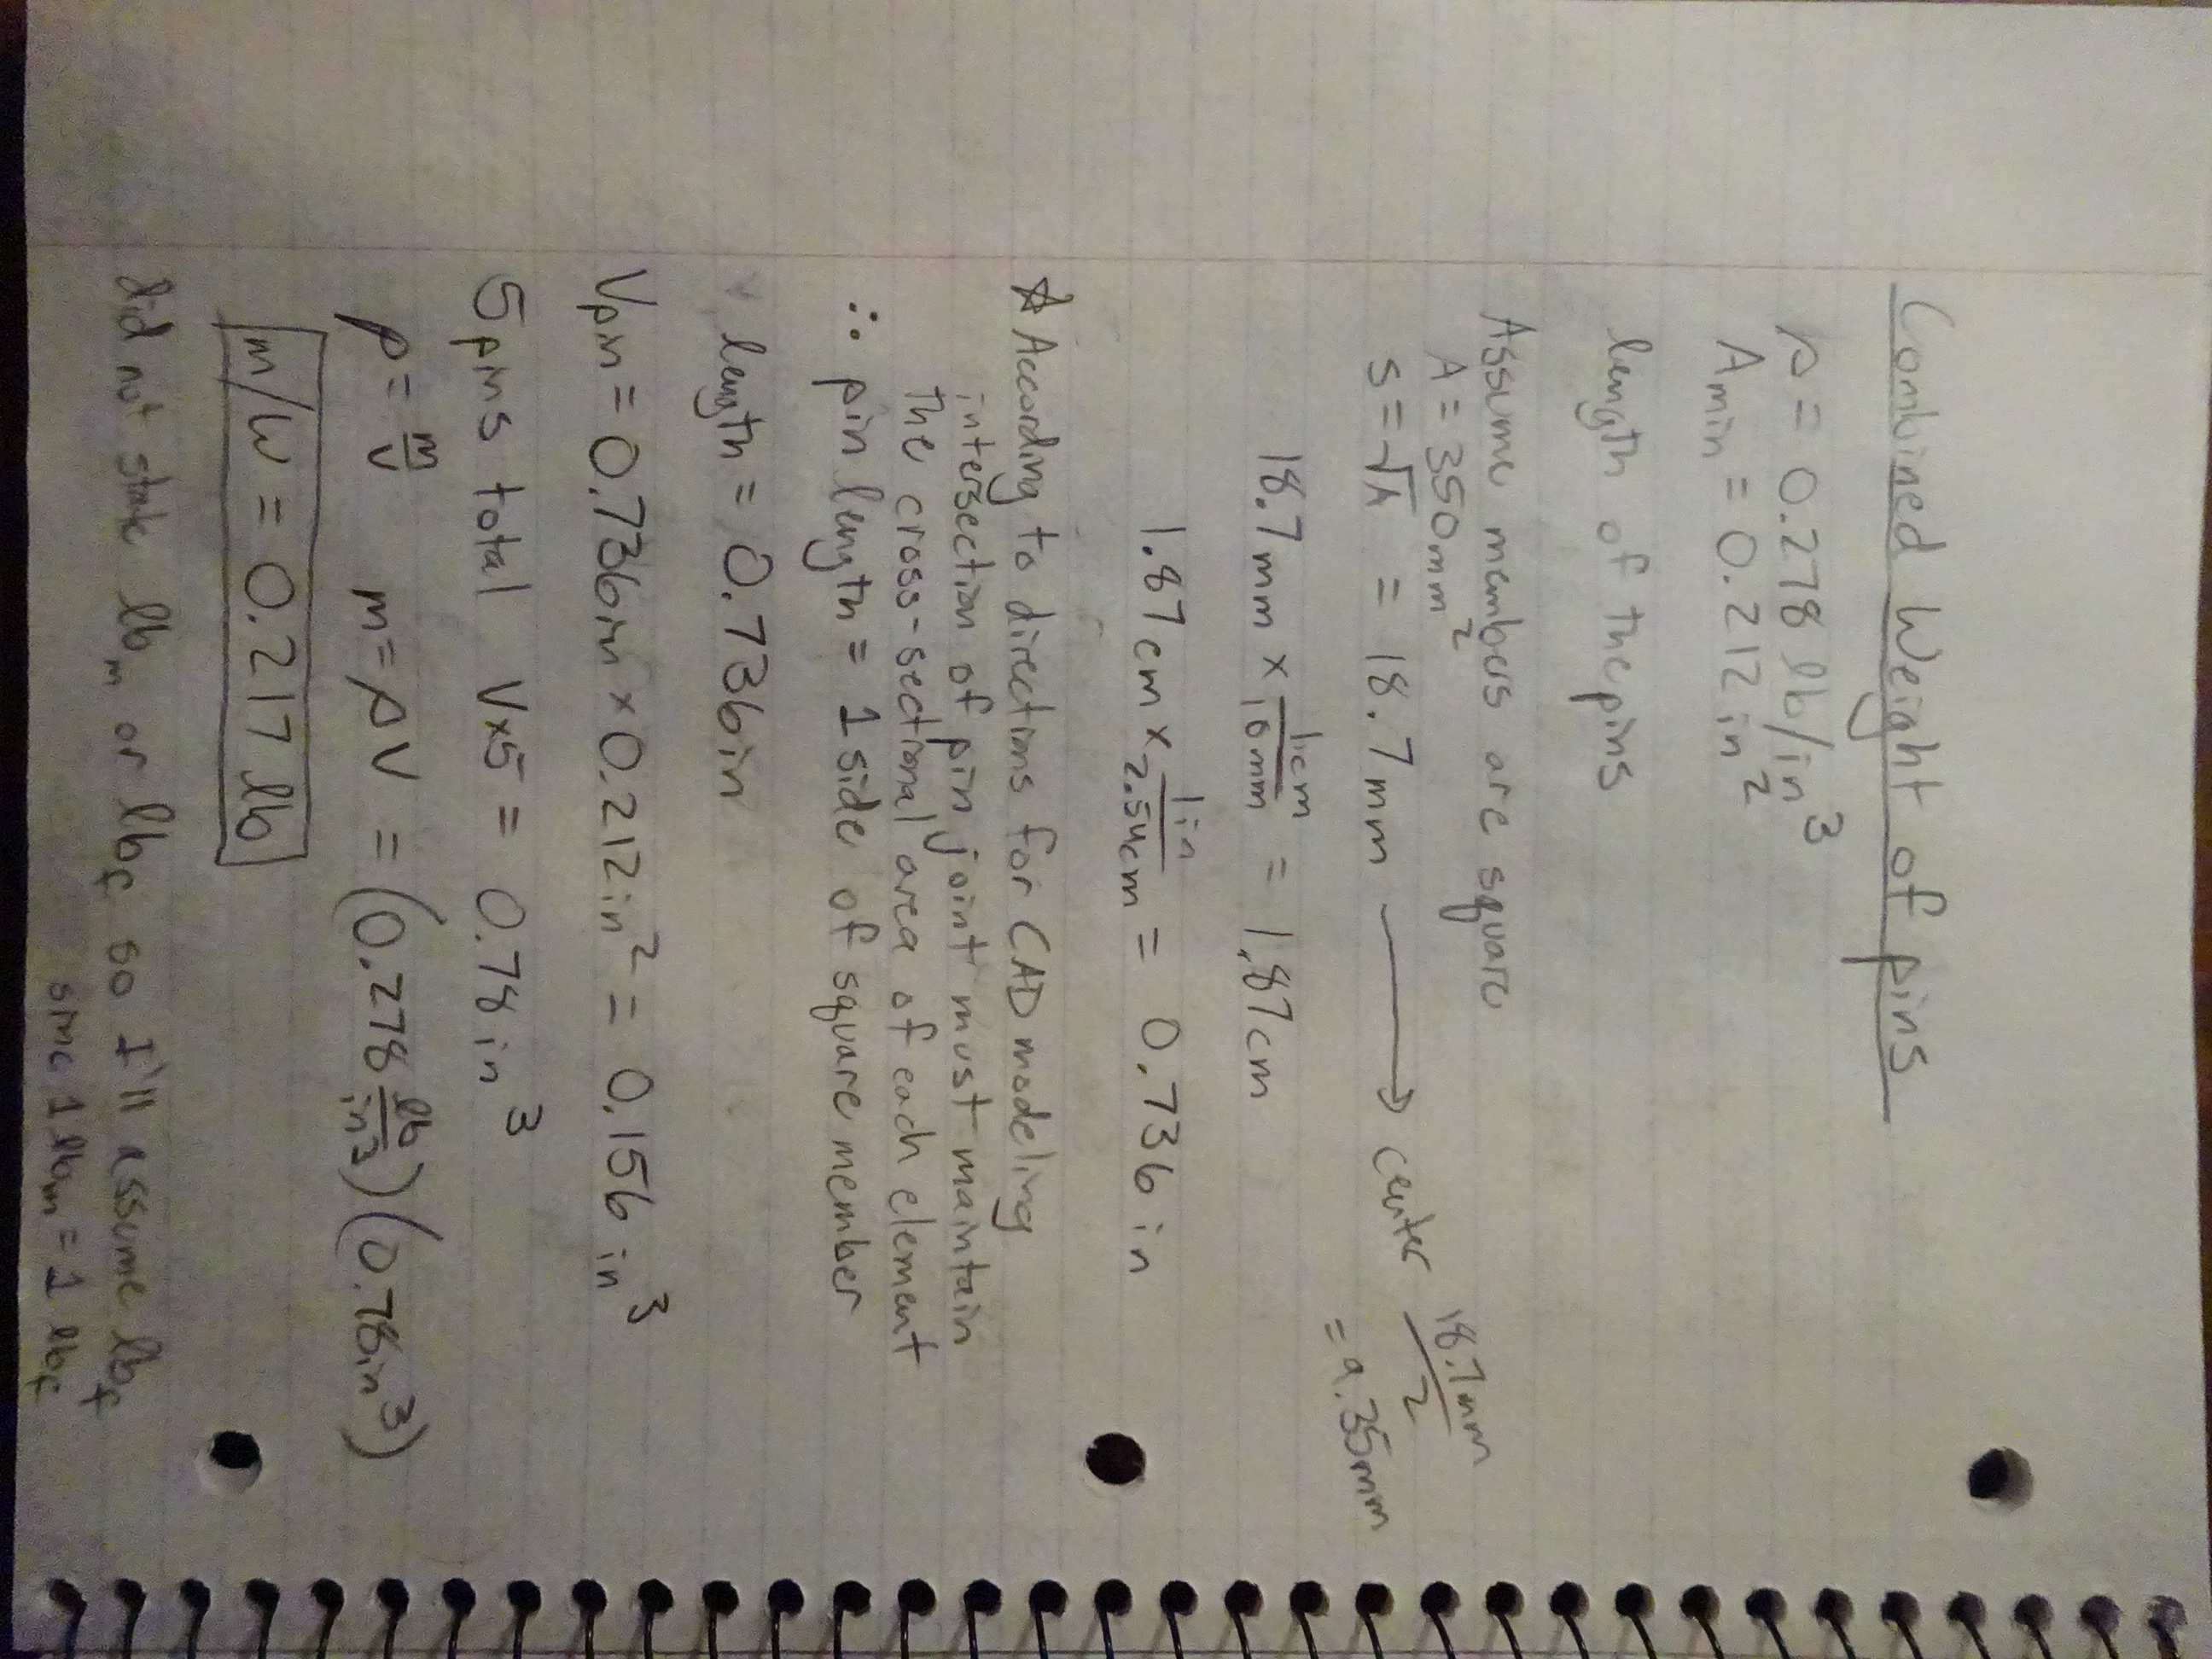 Combined Weight of pins
ρ = 0.278 lb/in³
Amin = 0.212 in²
length of the pins
Assume members are square
A = 350mm²
s = √A = 18.7mm ⟶ center 18.7mm/2 = 9.35mm
18.7mm × 1cm/10mm = 1.87cm
1.87cm × 1in/2.54cm = 0.736 in
☆ According to directions for CAD modeling
intersection of pin joint must maintain
the cross-sectional area of each element
∴ pin length = 1 side of square member
length = 0.736in
Vpin = 0.736in × 0.212in² = 0.156 in³
5 pins total V×5 = 0.78 in³
ρ = m/V m = ρV = (0.278 lb/in³)(0.78in³)
m/W = 0.217 lb
did not state lbm or lbf so I'll assume lbf
since 1 lbm = 1 lbf